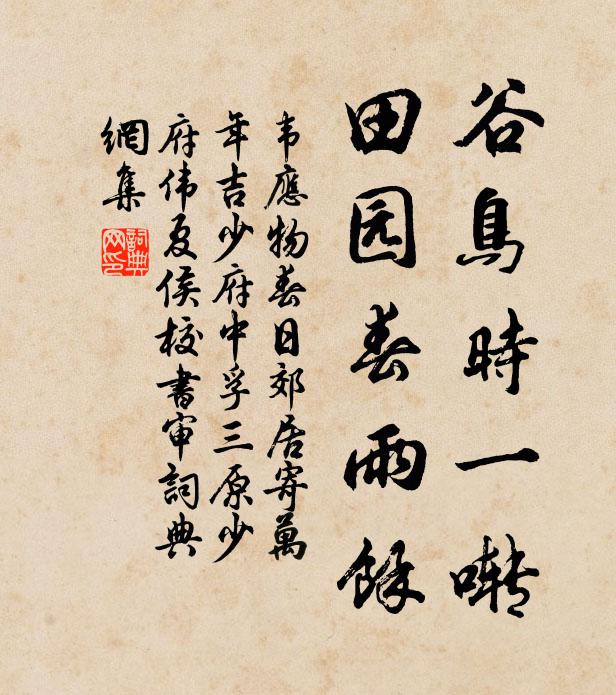 谷鳥時一囀
田园春雨餘
韦應物春日郊居寄萬
年吉少府中孚三原少
府伟夏侯校書审詞典
網集
詞典
网印